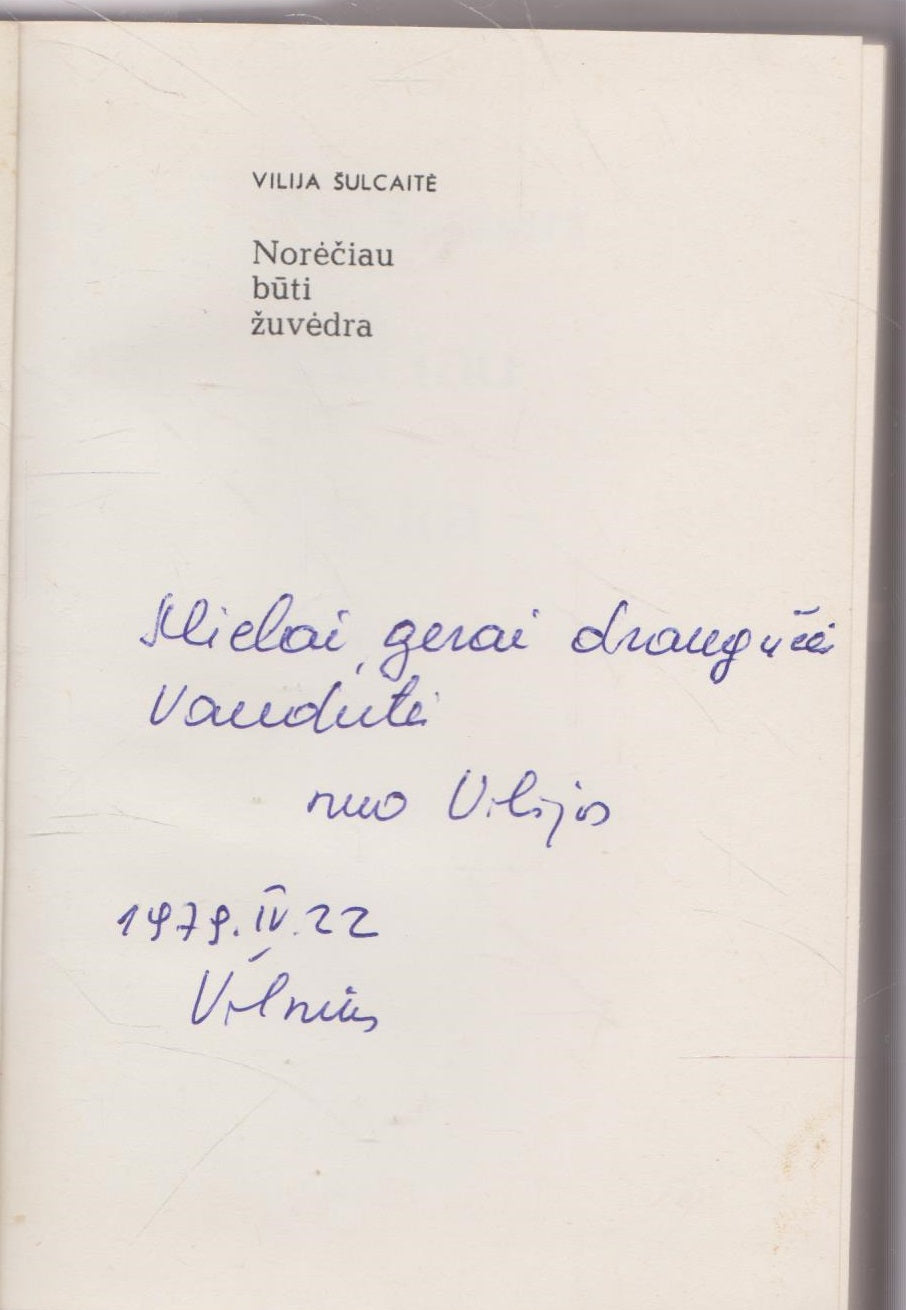 VILIJA ŠULCAITĖ
Norėčiau
būti
žuvėdra
Mielai, gerai draugučei
Vandutei
nuo Vilijos
1979.IV.22
Vilnius